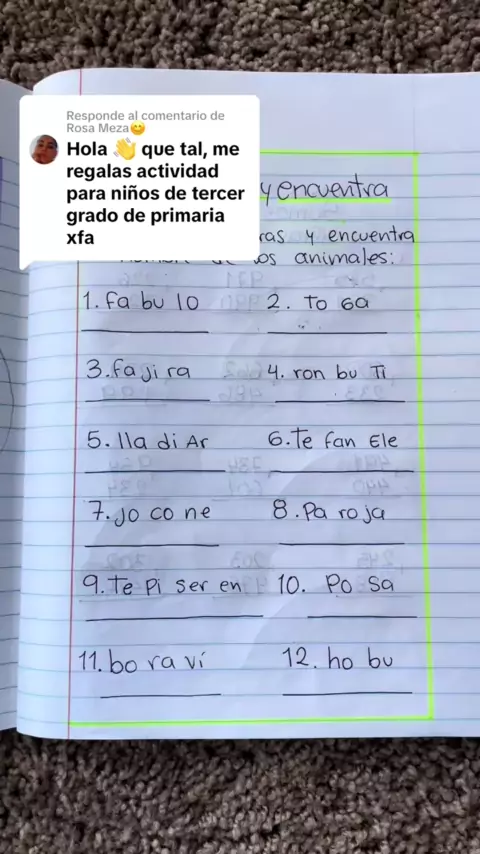 Responde al comentario de
Rosa Meza😊
Hola 👋 que tal, me
regalas actividad
para niños de tercer
grado de primaria
xfa
y encuentra
ras y encuentra
os animales:
1. fa bu lo
2. To ga
3. fa ji ra
4. ron bu Ti
5. lla di Ar
6. Te fan Ele
7. Jo co ne
8. Pa ro ja
9. Te Pi ser en
10. Po Sa
11. bo ra ví
12. ho bu